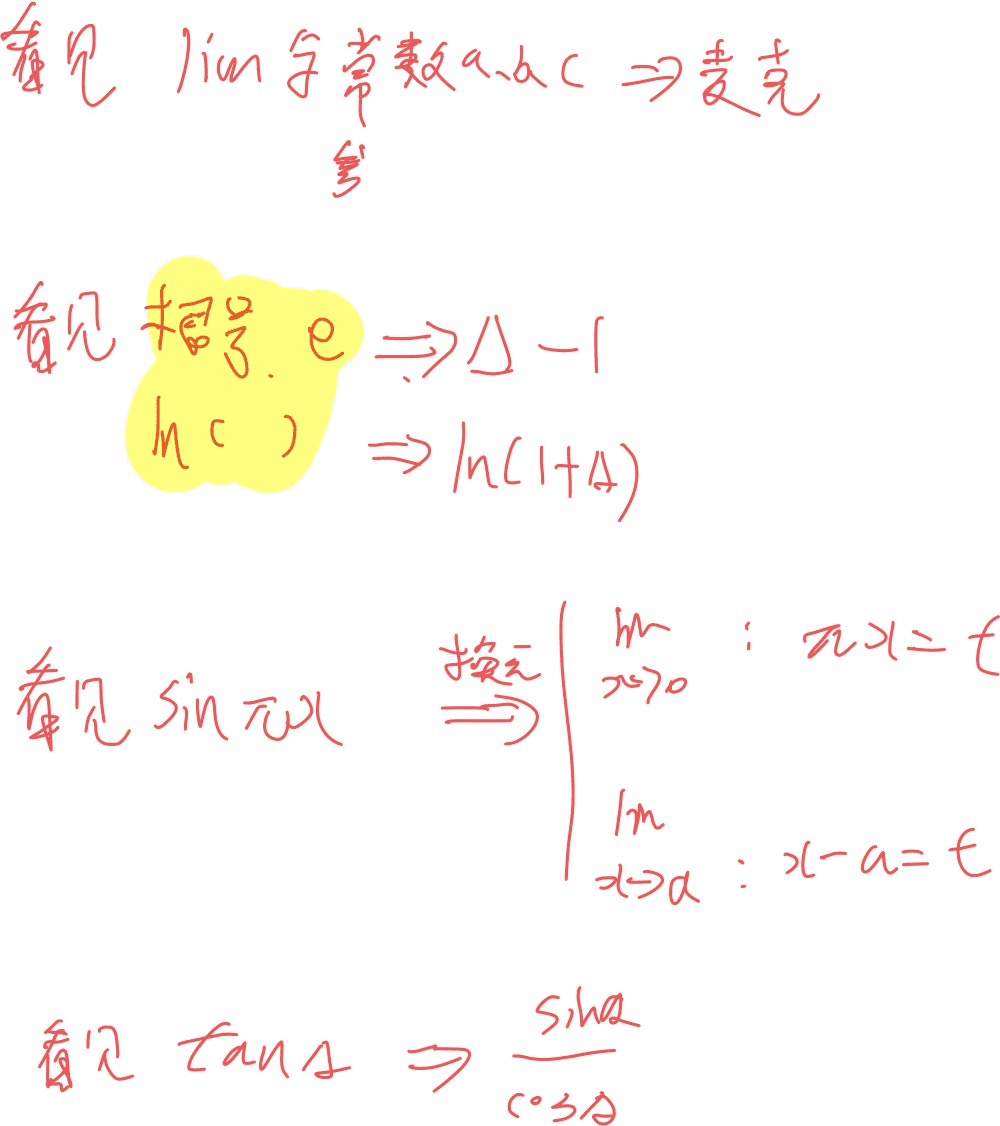 看见 lim 含常数a、b、c ⇒ 麦克
参
看见 根号. e ⇒ Δ-1
ln( ) ⇒ ln(1+Δ)
看见 sinπx 换元 ⇒ lim x→0 : πx=t
lim x→a : x-a=t
看见 tanΔ ⇒ sinΔ
cosΔ